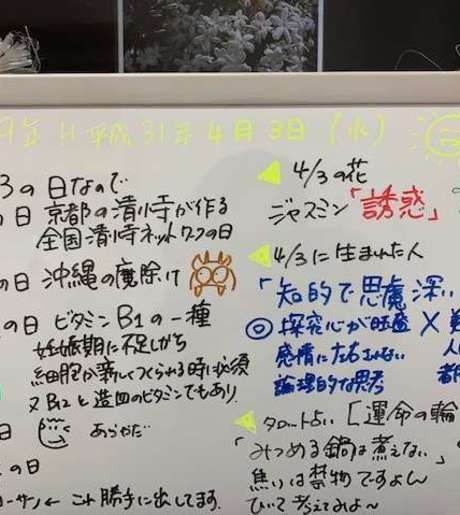 9年 H 平成31年 4月3日 (水)
3の日なので
の日 京都の清水寺が作る
全国清水寺ネットワークの日
の日 沖縄の魔除け
の日 ビタミンB1の一種
妊娠期に不足しがち
細胞が新しくつくられる時に必須
又B12と造血のビタミンでもあり
日 あらやだー
の日
ーサン ← これ勝手に出してます。
4/3の花
ジャスミン「誘惑」
4/3に生まれた人
「知的で思慮深い
◎探究心が旺盛 ×
感情に左右されない
論理的な思考
タロット占い [運命の輪
「みつめる鍋は煮えない」
焦りは禁物ですよん
ひいて考えてみよ〜